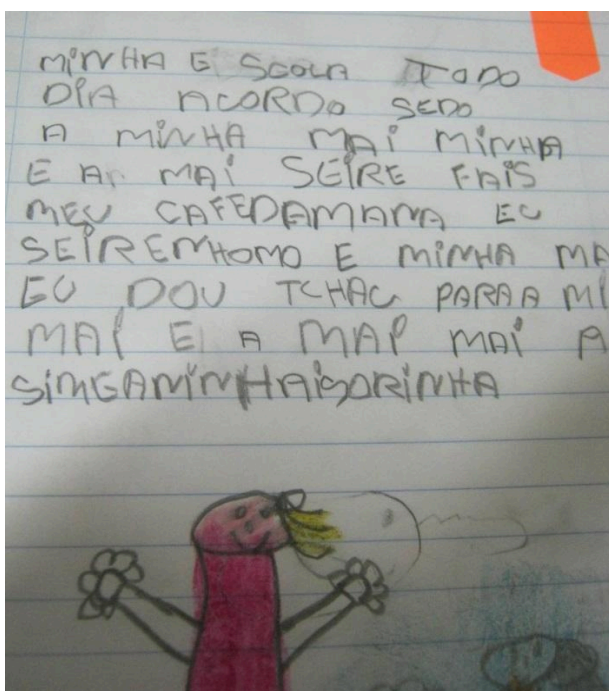 MINHA E SCOLA TODO
DIA ACORDO SEDO
A MINHA MAI MINHA
E A MAI SEIRE FAIS
MEU CAFEDAMANA EU
SEIREMHOMO E MINHA MA
EU DOU TCHAU PARA A MI
MAI E A MAP MAI A
SIMGAMINHAISORINHA